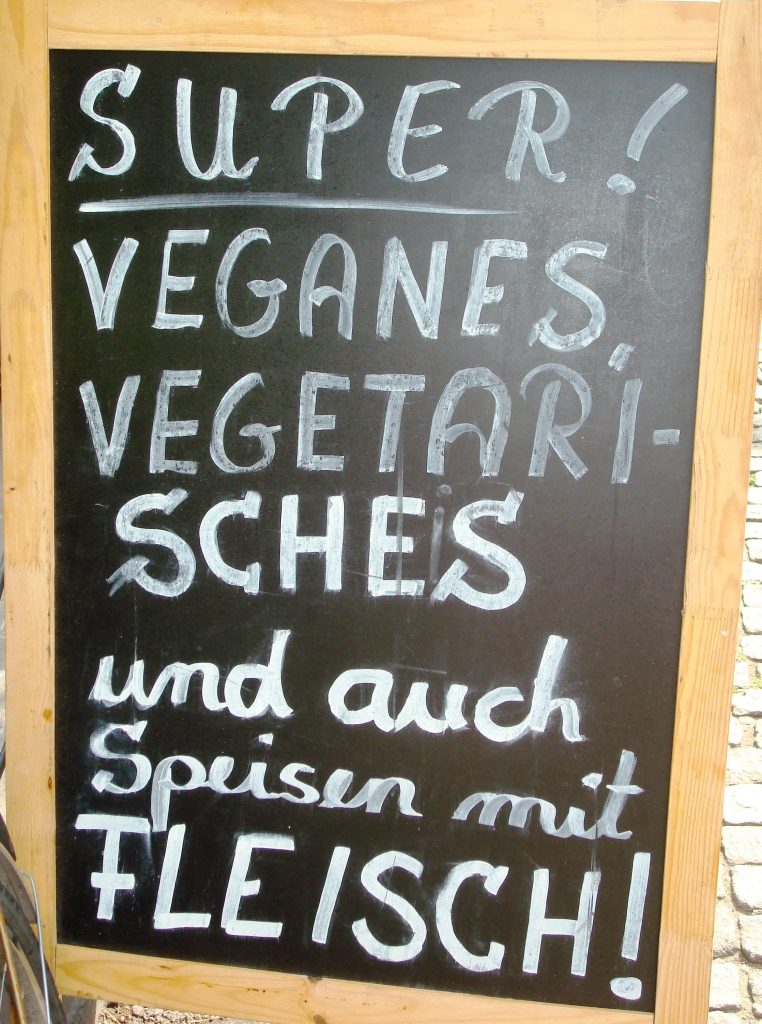 SUPER!
VEGANES,
VEGETARI-
SCHES
und auch
Speisen mit
FLEISCH!